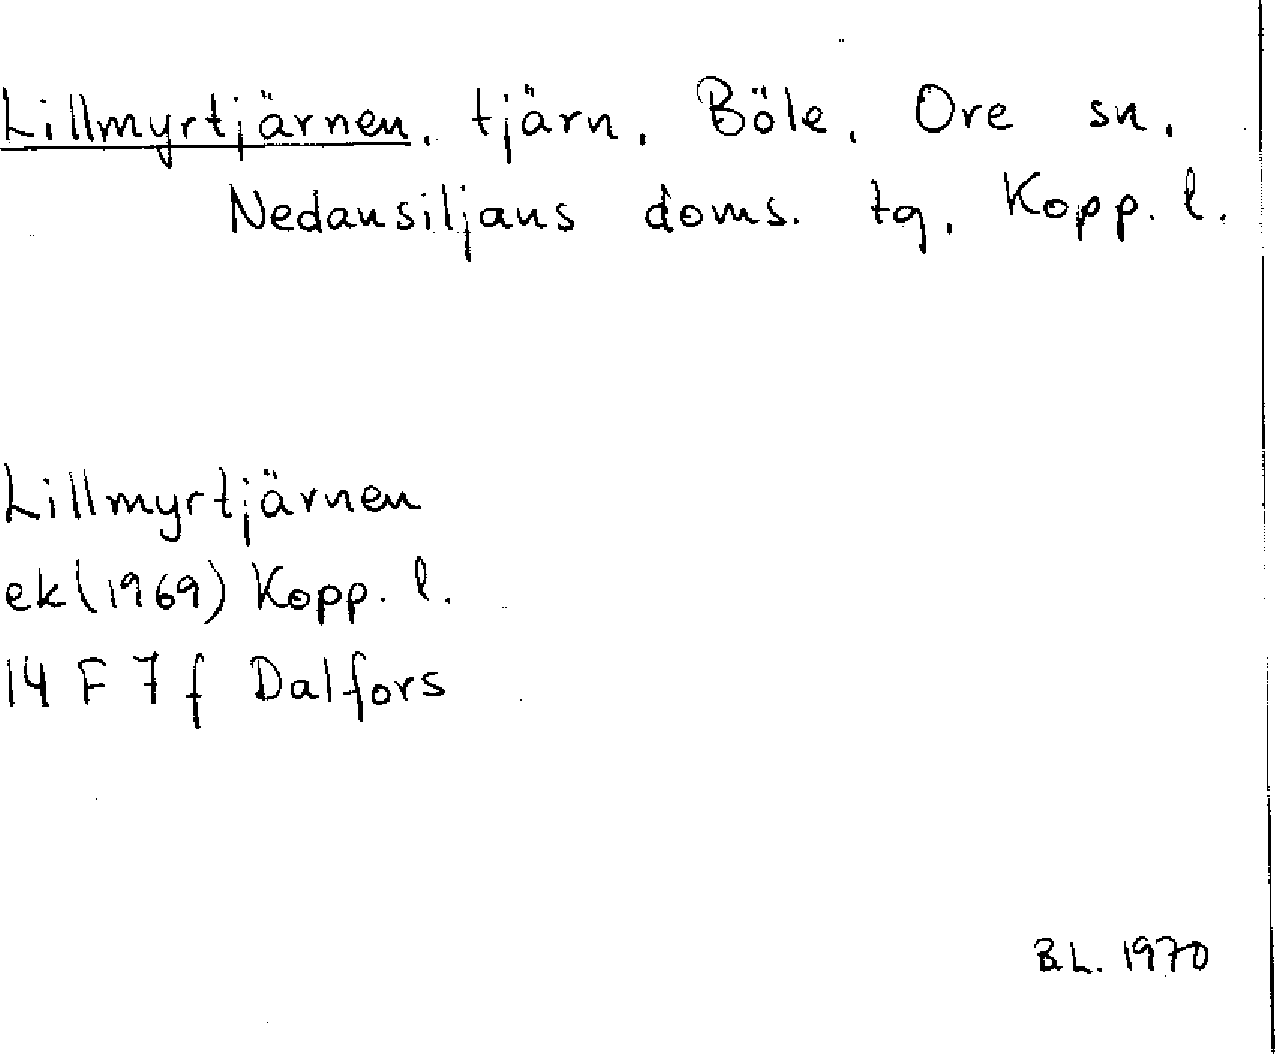 Lillmyrtjärnen, tjärn, Böle, Ore sn,
Nedansiljans doms. tg, Kopp. l.
Lillmyrtjärnen
ek (1969) Kopp. l.
14 F 7 f Dalfors
B.L. 1970